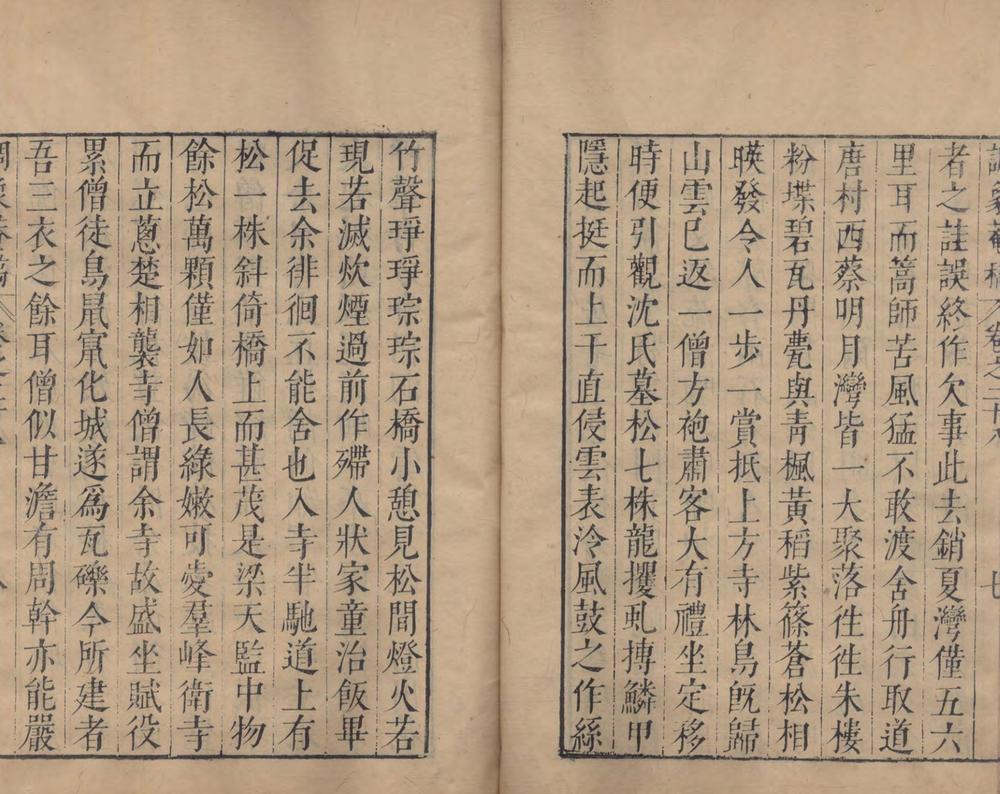 者之詿誤終作欠事此去銷夏灣僅五六
里耳而篙師苦風猛不敢渡舍舟行取道
唐村西蔡明月灣皆一大聚落徃徃朱樓
粉堞碧瓦丹甍與青楓黃稻紫篠蒼松相
暎發令人一步一賞抵上方寺林鳥旣歸
山雲已返一僧方袍肅客大有禮坐定移
時便引觀沈氏墓松七株龍攫虬摶鱗甲
隱起挺而上干直侵雲表泠風鼓之作絲
竹聲琤琤琮琮石橋小憩見松間燈火若
現若滅炊煙過前作殢人狀家童治飯畢
促去余徘徊不能舍也入寺半馳道上有
松一株斜倚橋上而甚茂是梁天監中物
餘松萬顆僅如人長綠嫩可愛羣峰衛寺
而立蔥楚相襲寺僧謂余寺故盛坐賦役
累僧徒鳥鼠竄化城遂爲瓦礫今所建者
吾三衣之餘耳僧似甘澹有周幹亦能嚴